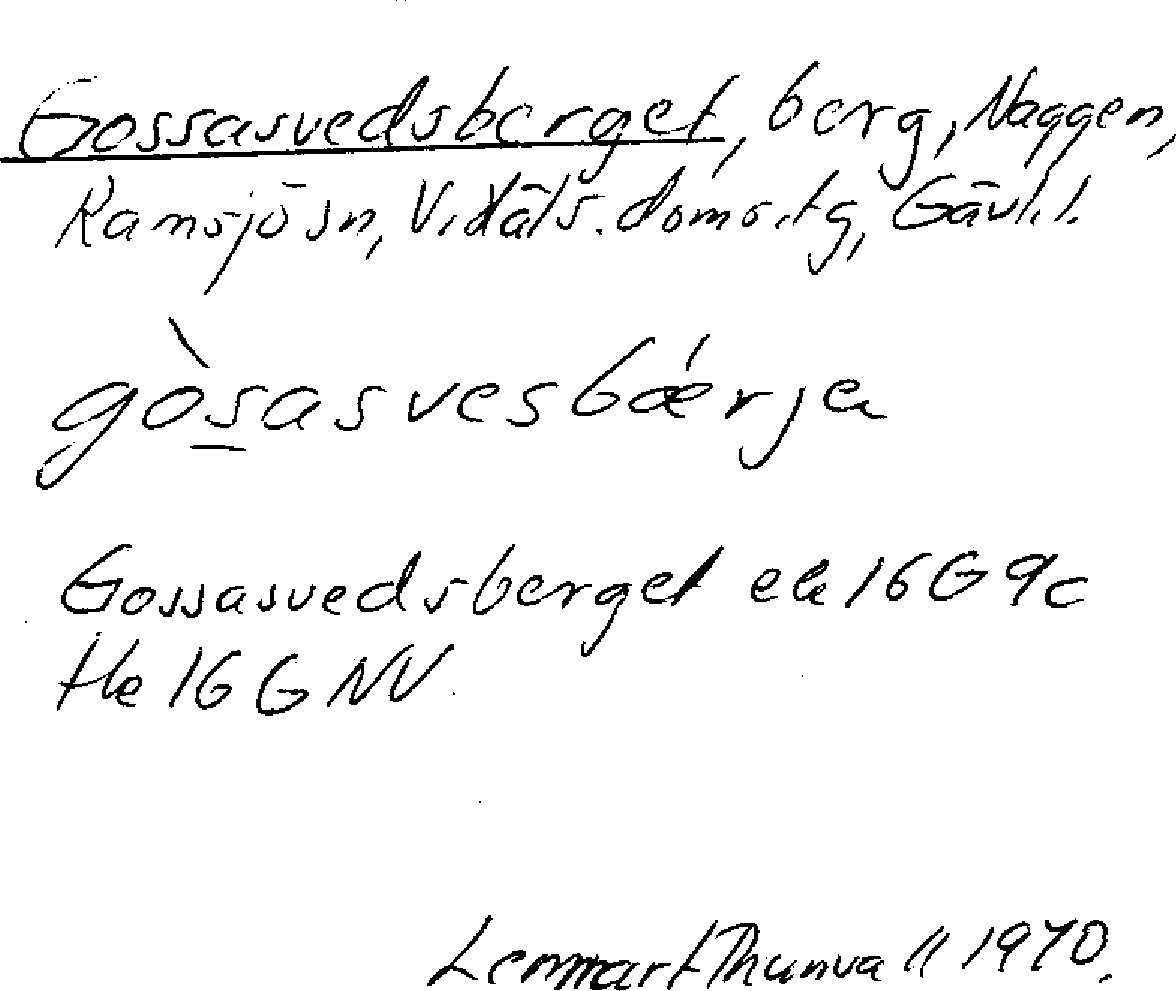 Gossasvedsberget, berg, Naggen,
Ramsjö sn, V. Häls. doms.tg, Gävl.l.
gòsasvesbǽrje
Gossasvedsberget ek 16G 9c
tk 16 G NV
Lennart Thunvall 1970.